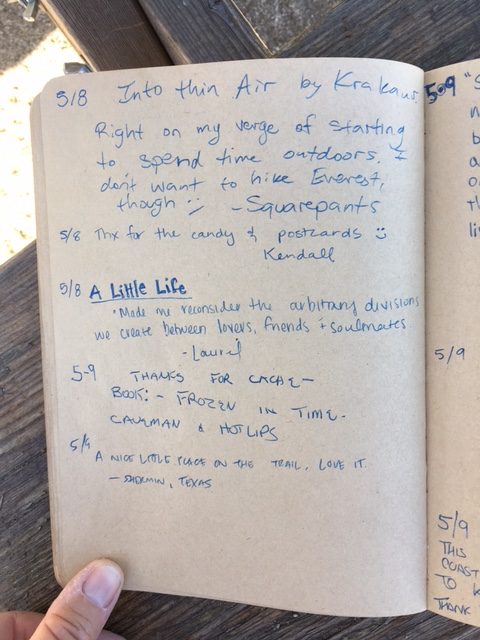 5/8 Into thin Air by Krakaur.
Right on my verge of starting
to spend time outdoors. I
don't want to hike Everest,
though :) - Squarepants
5/8 Thx for the candy & postcards :)
Kendall
5/8 A Little Life
"Made me reconsider the arbitrary divisions
we create between lovers, friends + soulmates
- Laurel
5-9 THANKS FOR CACHE -
BOOK: - FROZEN IN TIME.
CAVEMAN & HOTLIPS
5/9
A NICE LITTLE PLACE ON THE TRAIL. LOVE IT
TEXAS
5-9 "S
5/9
5/9
THIS
COAST
TO K
THANK